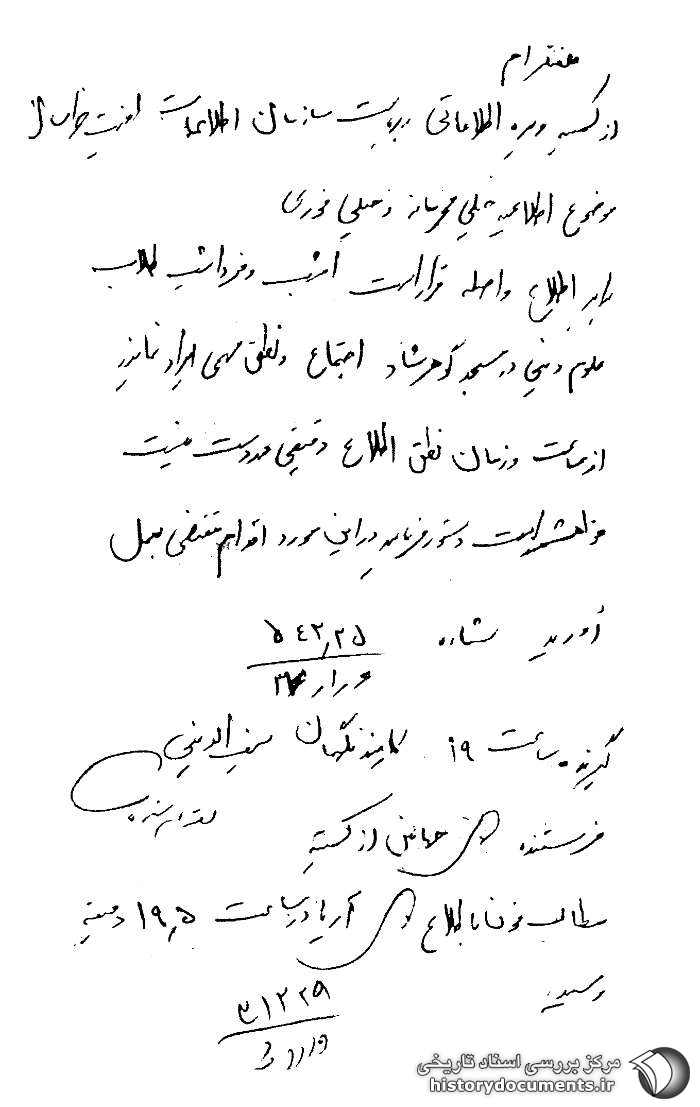 تلفنگرام
از کمیته اطلاعاتی بریاست سازمان اطلاعات امنیت خراسان
موضوع اطلاعیه خیلی محرمانه و خیلی فوری
برابر اطلاع واصله قرار است امشب و فردا شب طلاب
علوم دینی در مسجد گوهرشاد اجتماع و نطق مهمی ایراد نمایند
از ساعت و زمان نطق اطلاع دقیقی در دست نیست
خواهشمند است دستور فرمایید در این مورد اقدام مقتضی بعمل
آورید شماره ۵۴۲٫۲۵
گیرنده ساعت ۱۹ کارمند نگهبان سیف الدینی
فرستنده از کمیته
مطالب فوق باطلاع آریا در ساعت ۱۹٫۵ دقیقه
رسید
۳۱۲۲۹
مرکز بررسی اسناد تاریخی
historydocuments.ir